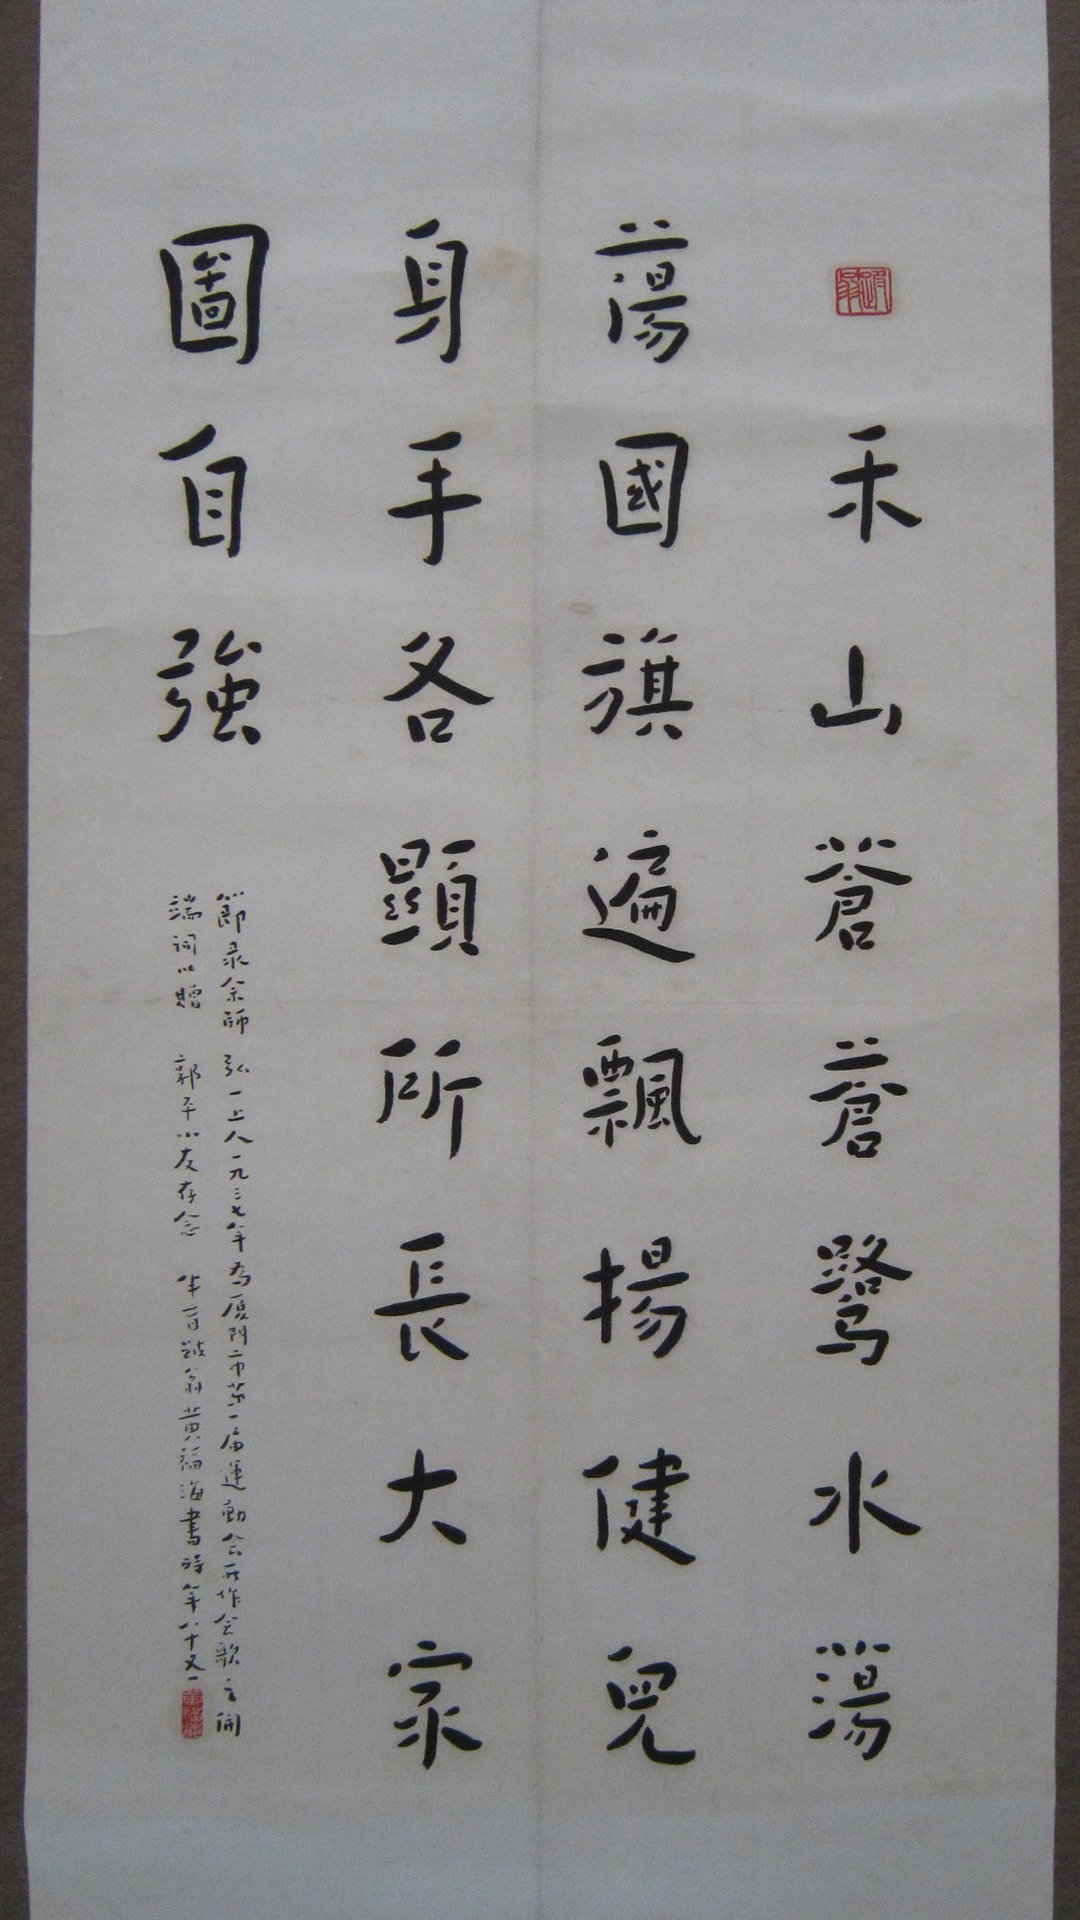 禾山蒼蒼鷺水蕩
蕩國旗遍飄揚健兒
身手各顯所長大家
圖自強
節录余師 弘一上人一九三七年為厦門市第一届運動会所作会歌之開
端词以贈 郭平小友存念 半盲跛翁黄福海書時年八十又一